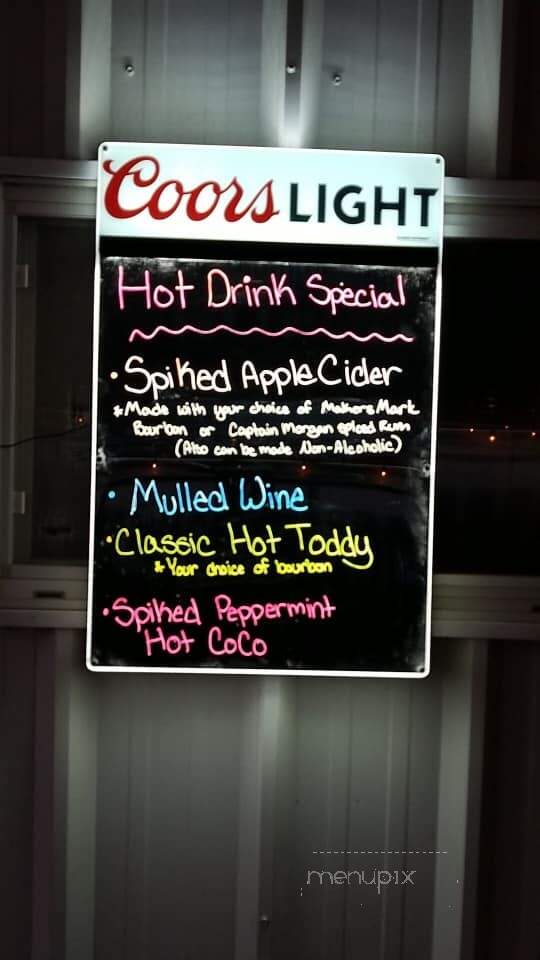 Coors LIGHT
Hot Drink Special
• Spiked Apple Cider
* Made with your choice of Makers Mark
Bourbon or Captain Morgan spiced Rum
(Also can be made Non-Alcoholic)
• Mulled Wine
• Classic Hot Toddy
* Your choice of bourbon
• Spiked Peppermint
Hot CoCo
menupix